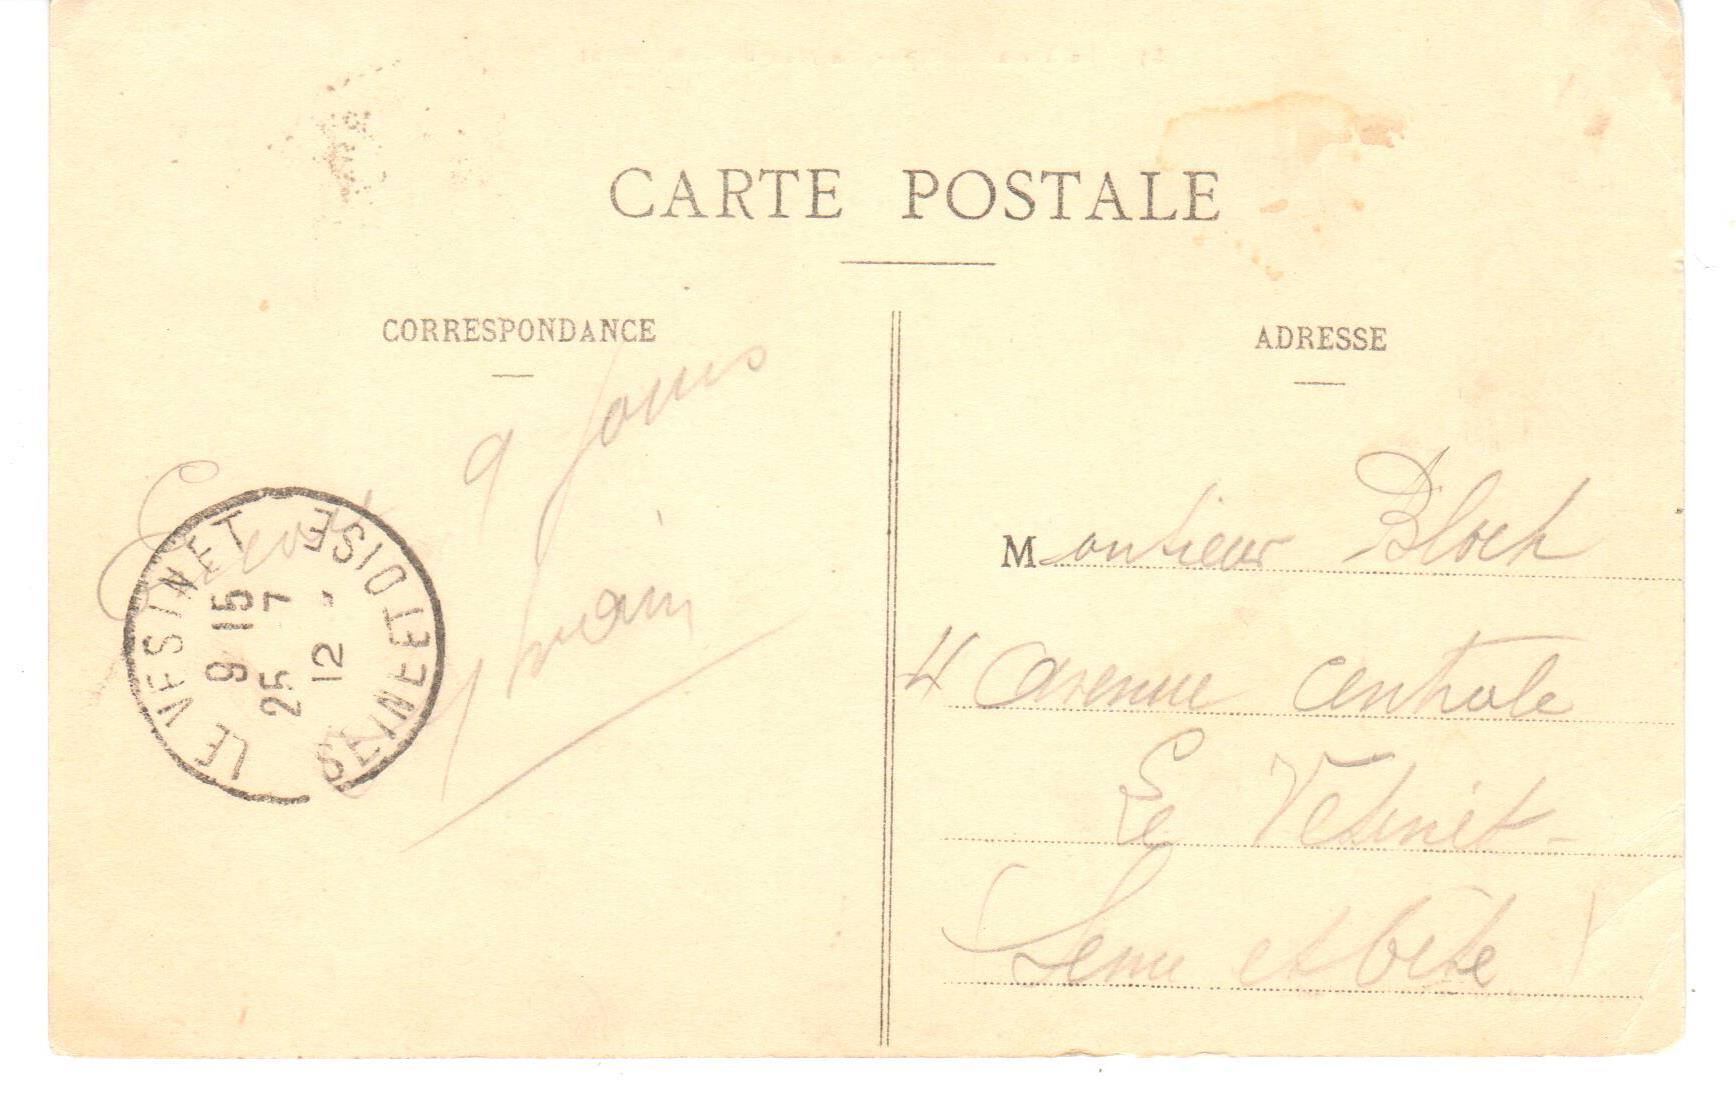 CARTE POSTALE
CORRESPONDANCE
9 jours
LE VESINET
SEINE ET OISE
9 15
25 7
12
ADRESSE
Monsieur Bloch
4 avenue centrale
Le Vésinet -
(Seine et Oise)